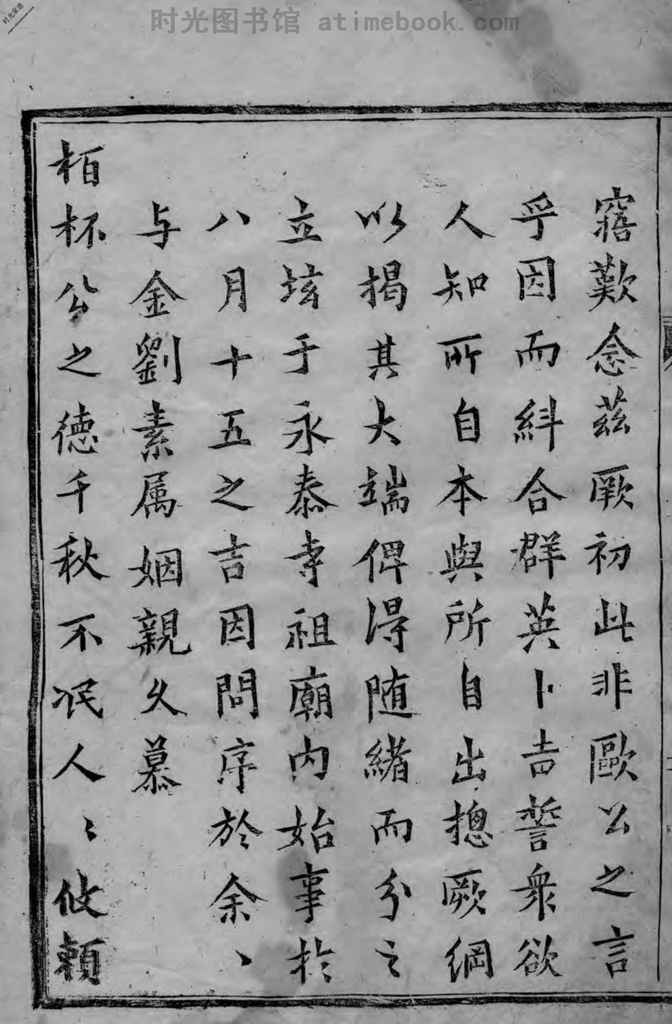 时光图书馆 atimebook.com
寤歎念茲厥初此非歐公之言
乎因而糾合群英卜吉誓衆欲
人知所自本與所自出摠厥綱
以揭其大端俾得随緒而分之
立垓于永泰寺祖廟内始事於
八月十五之吉因問序於余、
与金劉素属姻親久慕
栢杯公之德千秋不泯人、攸頼